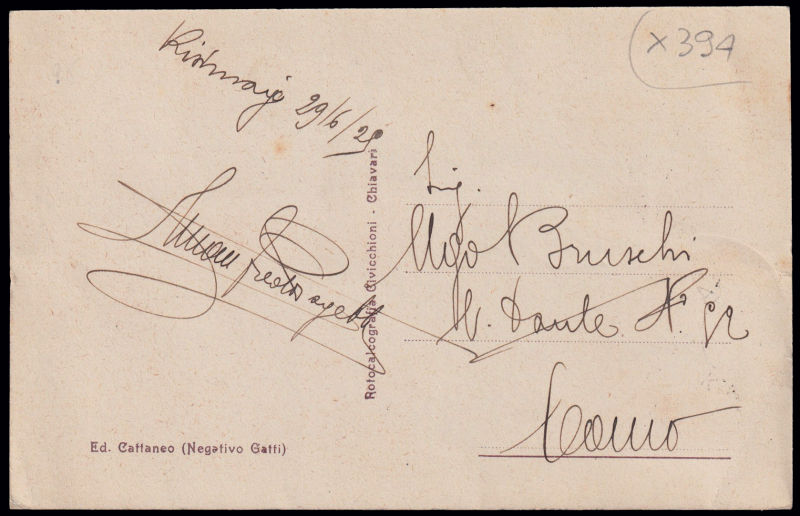 x 394
Kismayo 29/6/25
Sig.
Ugo Bruschi
V. Dante N.
Como
Rotocalcografia Civicchioni - Chiavari
Ed. Cattaneo (Negativo Gatti)